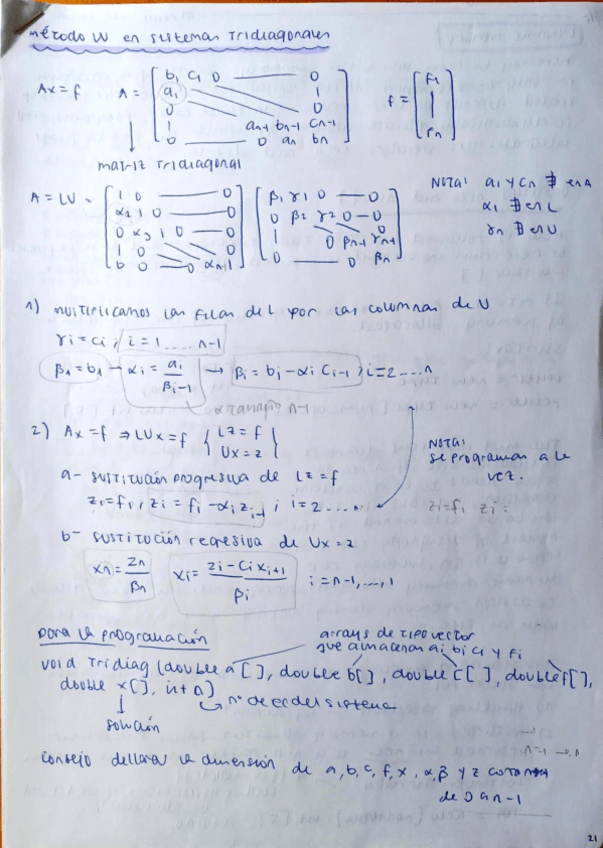 método LU en sistemas tridiagonales
Ax = f A = [ b1 c1 0 — 0
a1 1
0 0
1 an-1 bn-1 cn-1
0 — 0 an bn ] f = [ f1 fn ]
matriz tridiagonal
A = LU = [ 1 0 — 0
α2 1 0 — 0
0 α3 1 0 — 0
1 0 0
0 0 — 0 αn 1 ] [ β1 γ1 0 — 0
0 β2 γ2 0 — 0
1 0 βn-1 γn-1
0 — 0 βn ]
NOTA: a1 y cn ∄ en A
α1 ∄ en L
γn ∄ en U
1) multiplicamos las filas de L por las columnas de U
γi = ci ; i = 1 ..... n-1
β1 = b1 – αi = ai / βi-1 → βi = bi - αi ci-1 ; i = 2 .... n
α tamaño n-1
2) Ax = f ⇒ LUx = f { Lz = f
Ux = z }
NOTA:
se programan a la
vez.
a- sustitución progresiva de Lz = f
z1 = f1 , zi = fi - αi zi-1 ; i = 2 .... n
zi = fi zi =
b- sustitución regresiva de Ux = z
xn = zn / βn xi = zi - ci xi+1 / βi i = n-1, ..., 1
para la programación
arrays de tipo vector
que almacenan ai bi ci y fi
void Tridiag (double a[], double b[], double c[], double f[],
double x[], int n)
nº de ec del sistema
solución
n-1
consejo declarar la dimensión de a, b, c, f, x, α, β y z como
de 0 a n-1
21